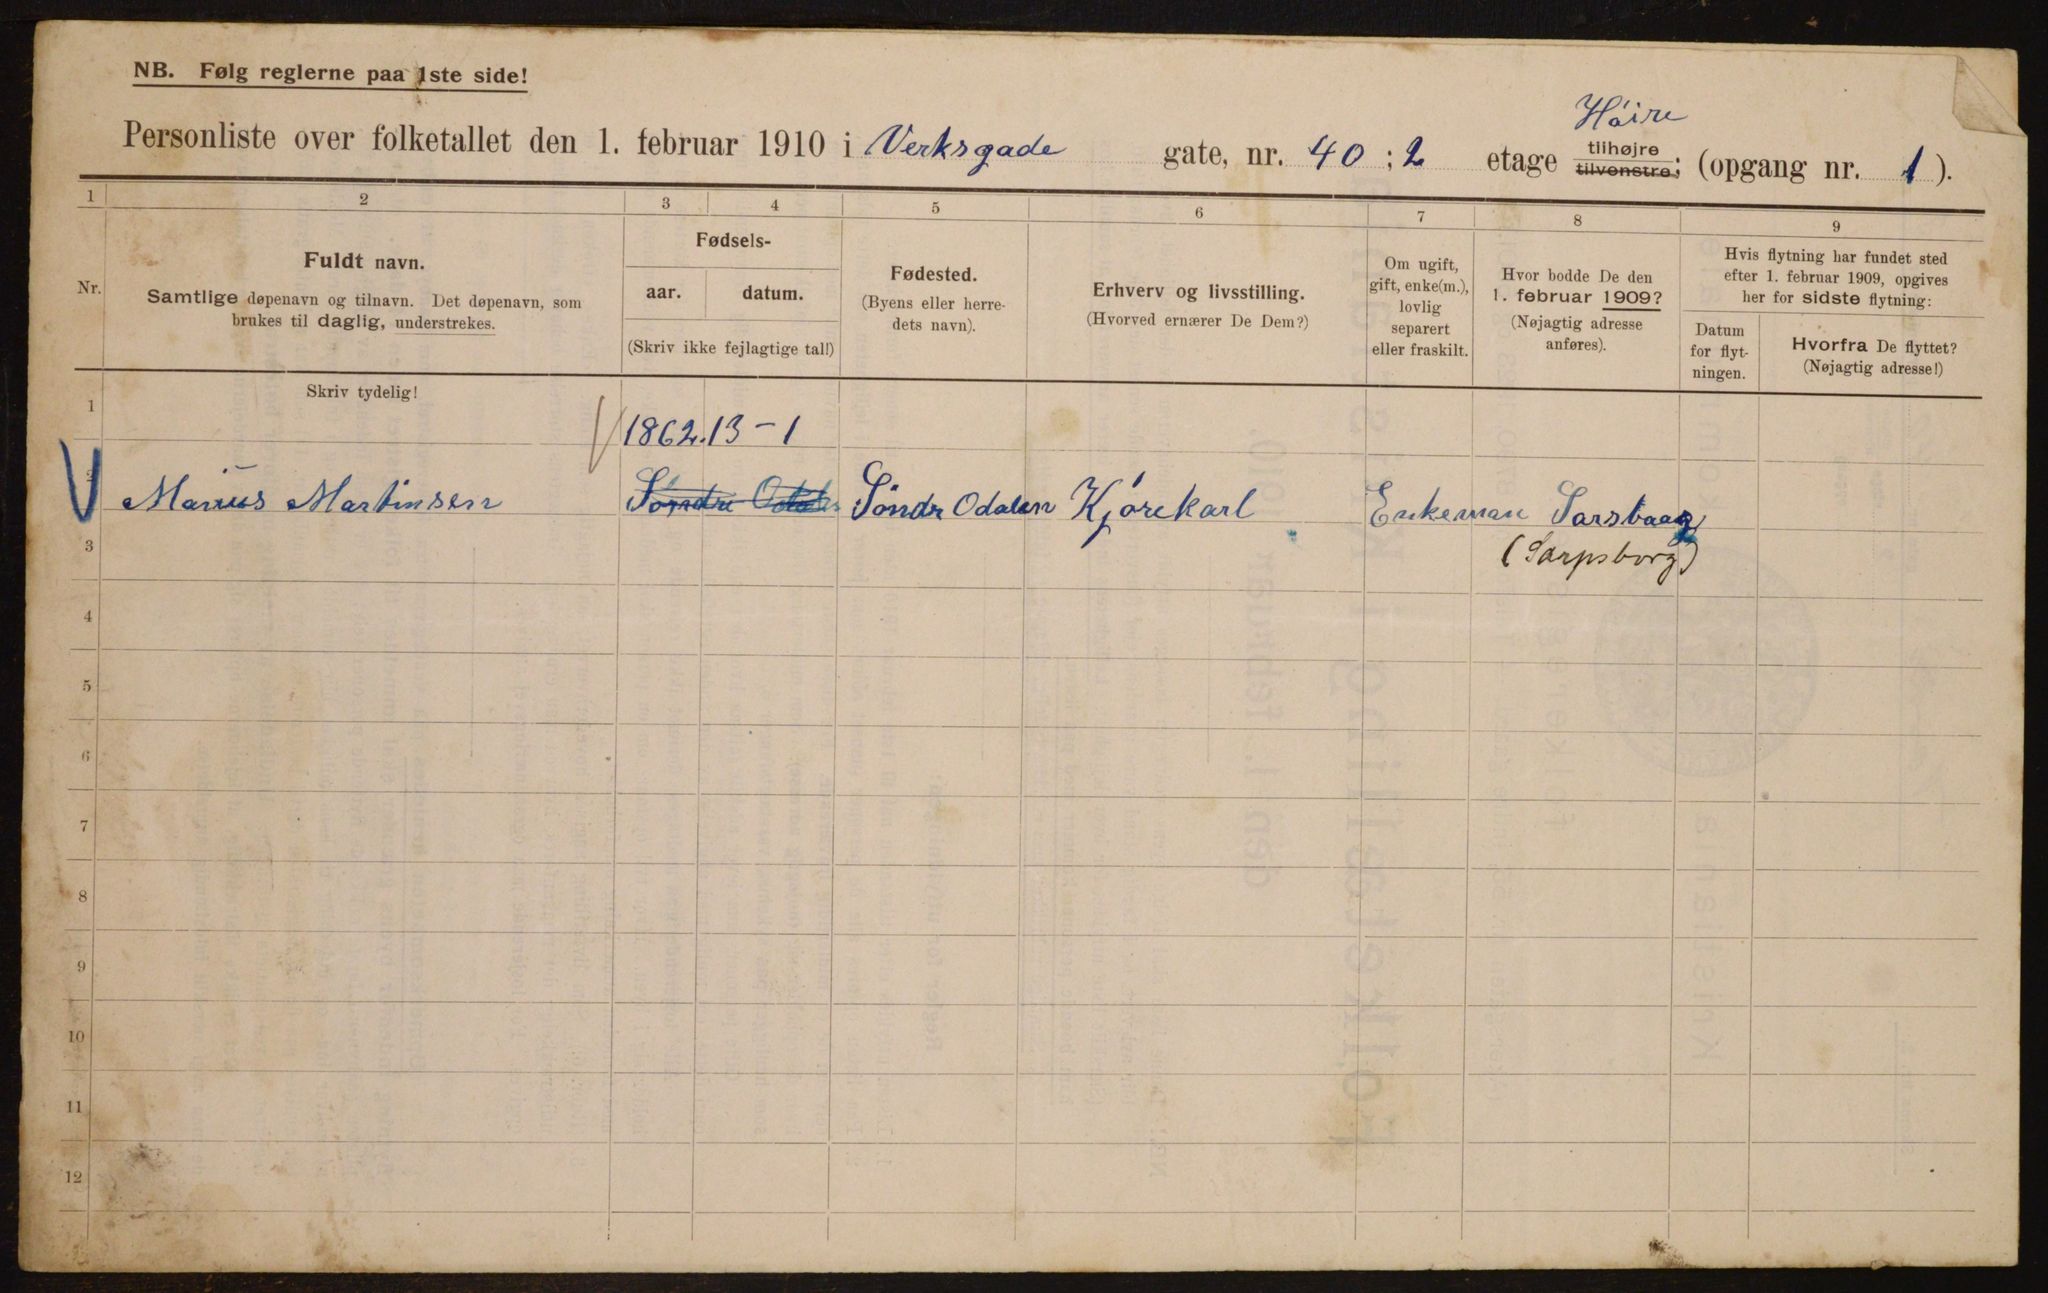 NB. Følg reglerne paa 1ste side!
Høire
Personliste over folketallet den 1. februar 1910 i Verksgade gate, nr. 40 ; 2 etage tilhøjre tilvenstre; (opgang nr. 1 ).
1 2 3 4 5 6 7 8 9
Nr.
Fuldt navn.
Samtlige døpenavn og tilnavn. Det døpenavn, som
brukes til daglig, understrekes.
Fødsels-
aar. datum.
(Skriv ikke fejlagtige tal!)
Fødested.
(Byens eller herre-
dets navn).
Erhverv og livsstilling.
(Hvorved ernærer De Dem?)
Om ugift,
gift, enke(m.),
lovlig
separert
eller fraskilt.
Hvor bodde De den
1. februar 1909?
(Nøjagtig adresse
anføres).
Hvis flytning har fundet sted
efter 1. februar 1909, opgives
her for sidste flytning:
Datum
for flyt-
ningen.
Hvorfra De flyttet?
(Nøjagtig adresse!)
Skriv tydelig!
1
1862. 13-1
2
Marius Martinsen Søndre Odalen Søndr Odalen Kjørekarl Enkeman Sarsbaag
3
(Sarpsborg)
4
5
6
7
8
9
10
11
12